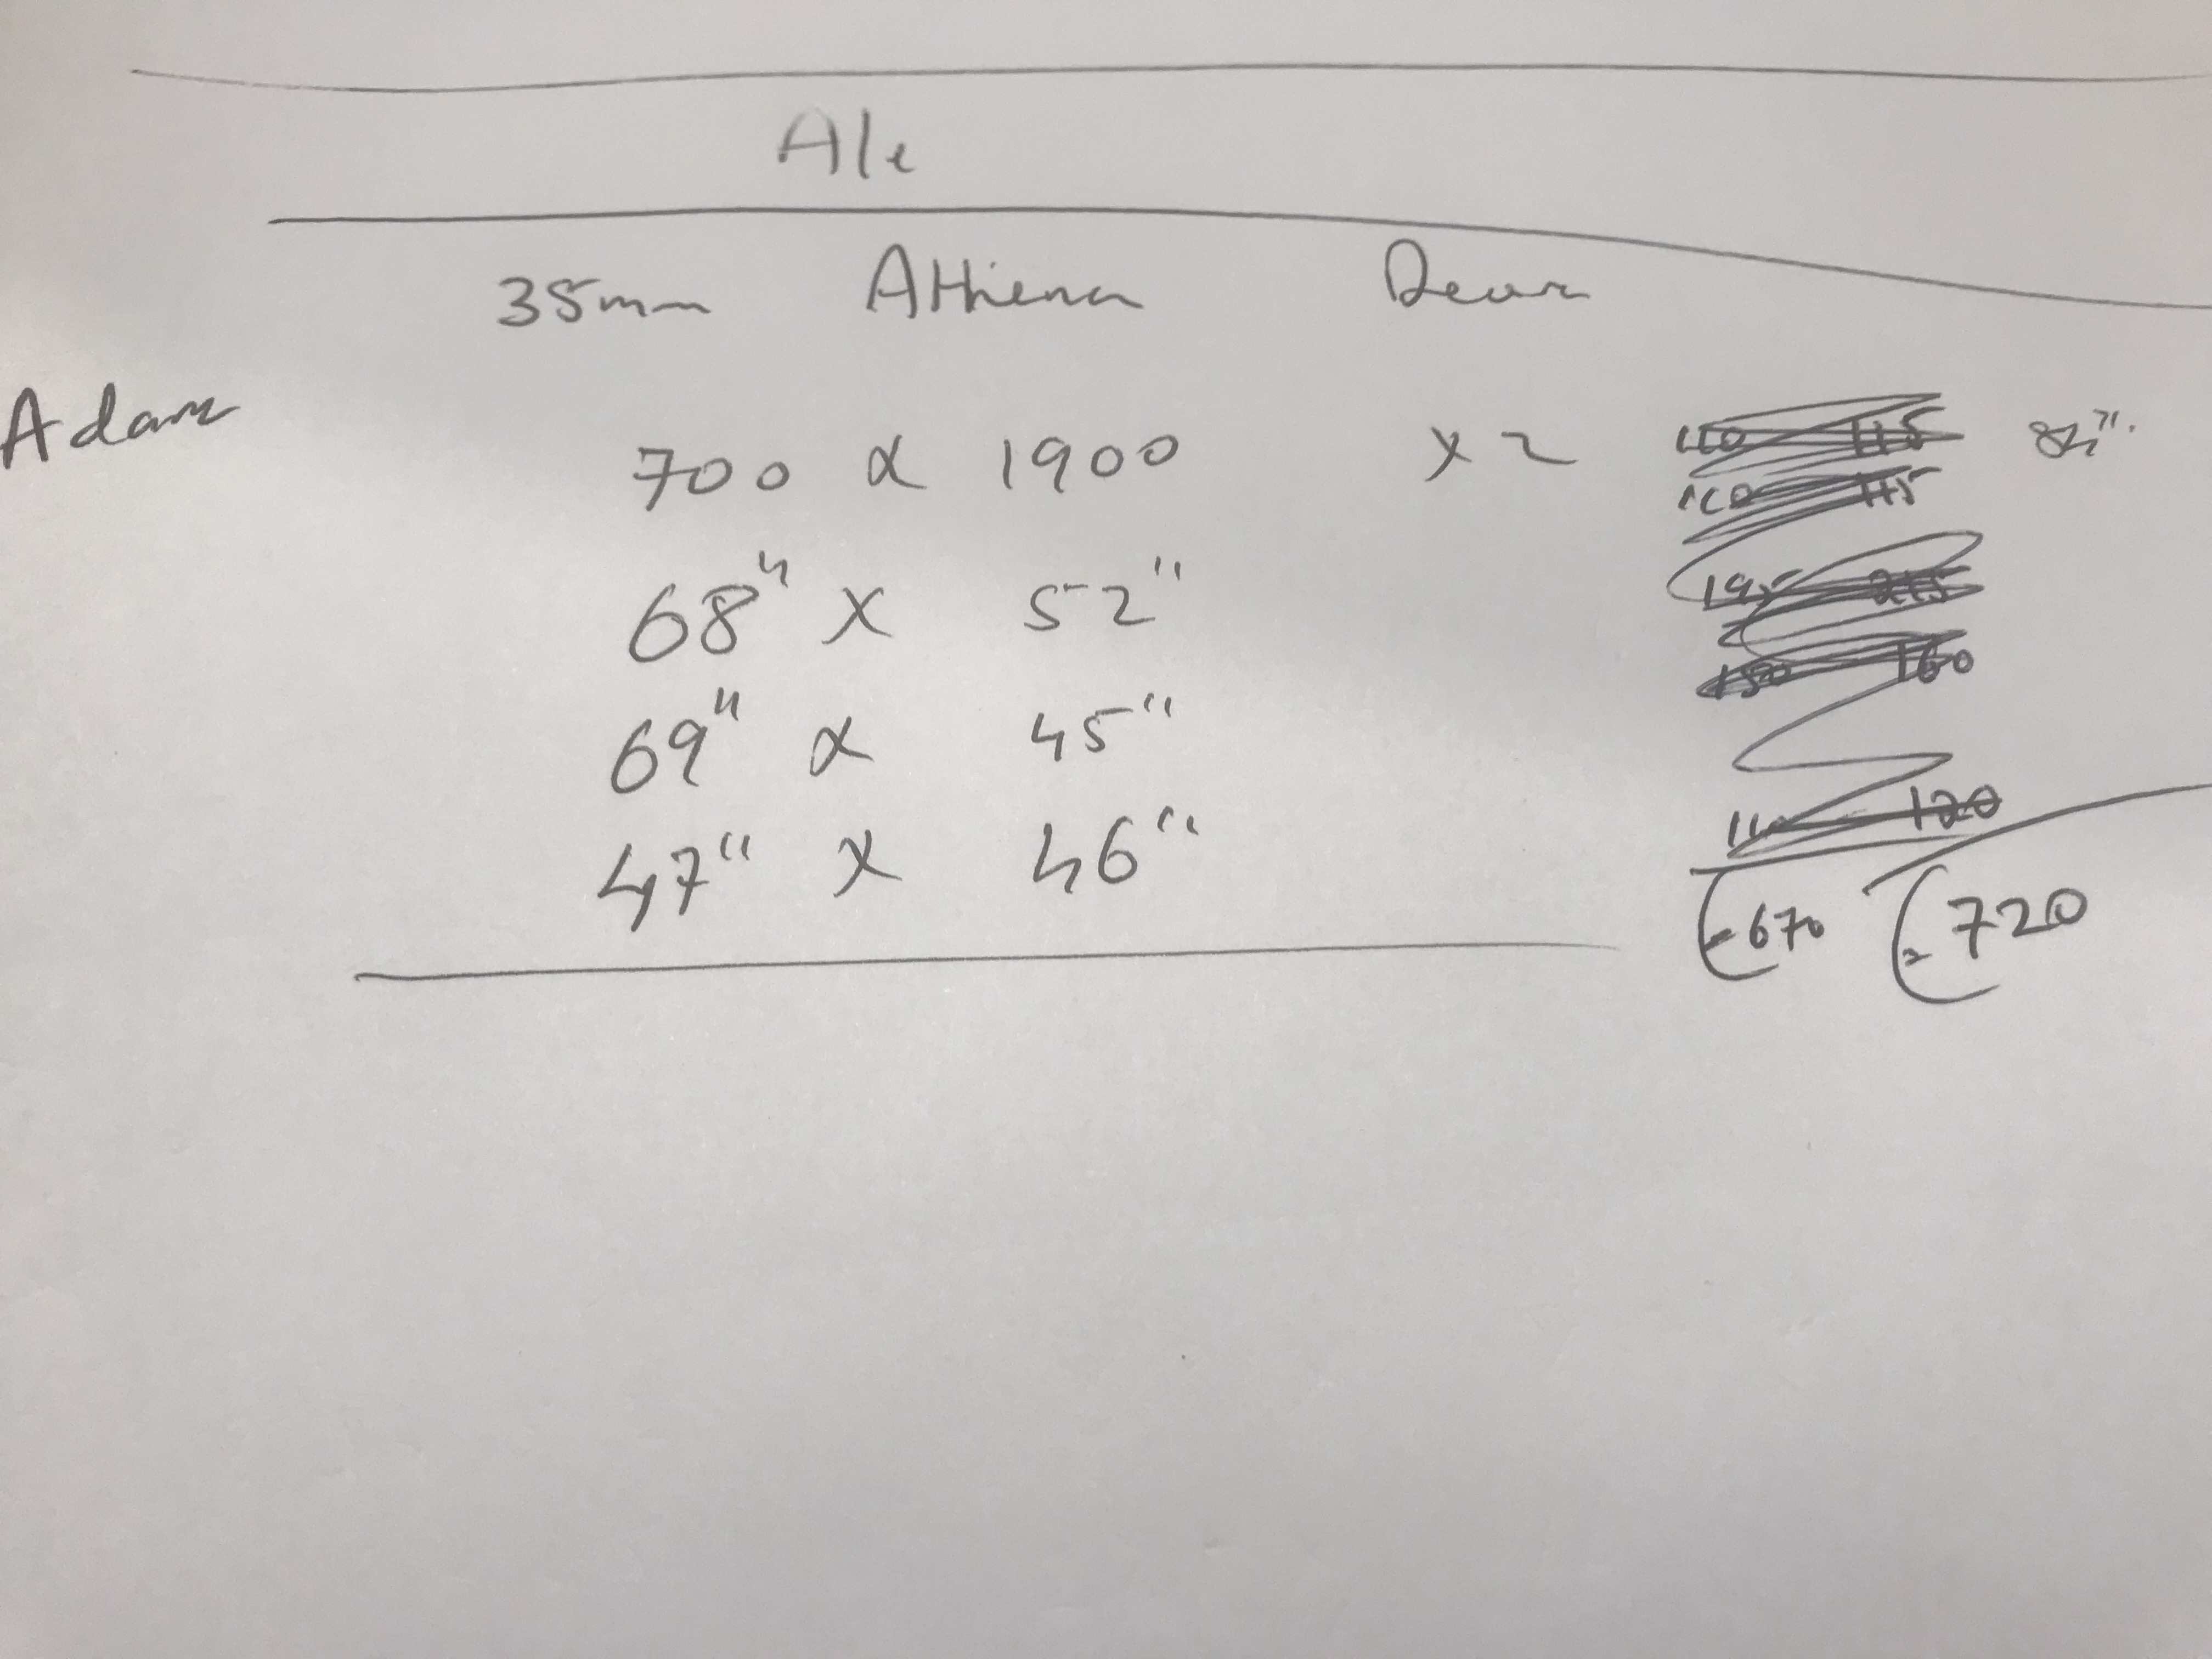 Ale
35mm Athena Dewr
Adam
700 x 1900 x 2
68" x 52"
69" x 45"
47" x 46"
110 115
195 215
150 160
110 120
= 670 = 720